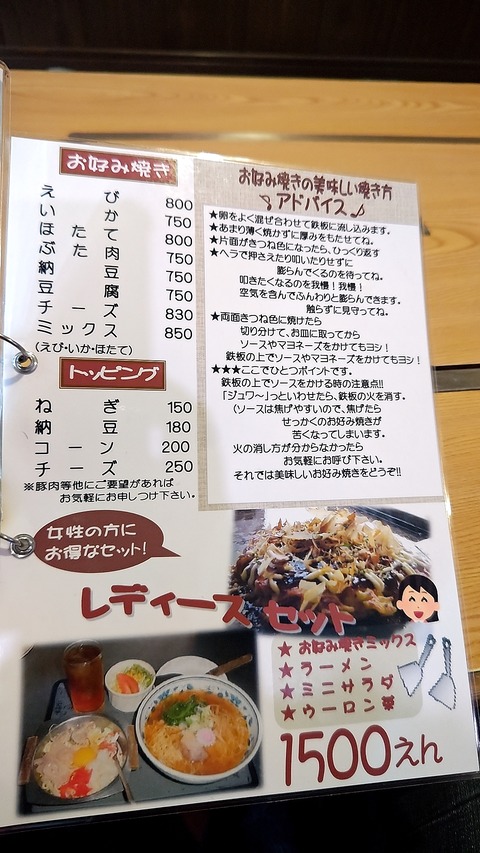 お好み焼き
えび 800
いか 750
ほたて 800
ぶた肉 750
納豆 750
豆腐 750
チーズ 830
ミックス 850
(えび・いか・ほたて)
トッピング
ねぎ 150
納豆 180
コーン 200
チーズ 250
※豚肉等他にご要望があれば
お気軽にお申しつけ下さい。
お好み焼きの美味しい焼き方
アドバイス♪
★卵をよく混ぜ合わせて鉄板に流し込みます。
★あまり薄く焼かずに厚みをもたせてね。
★片面がきつね色になったら、ひっくり返す
★ヘラで押さえたり叩いたりせずに
膨らんでくるのを待ってね。
叩きたくなるのを我慢!我慢!
空気を含んでふんわりと膨らんできます。
触らずに見守ってね。
★両面きつね色に焼けたら
切り分けて、お皿に取ってから
ソースやマヨネーズをかけてもヨシ!
鉄板の上でソースやマヨネーズをかけてもヨシ!
★★★ここでひとつポイントです。
鉄板の上でソースをかける時の注意点!!
「ジュワ～」っといわせたら、鉄板の火を消す。
(ソースは焦げやすいので、焦げたら
せっかくのお好み焼きが
苦くなってしまいます。
火の消し方が分からなかったら
お気軽にお呼び下さい。
それでは美味しいお好み焼きをどうぞ!!
女性の方に
お得なセット!
レディースセット
★お好み焼きミックス
★ラーメン
★ミニサラダ
★ウーロン茶
1500えん